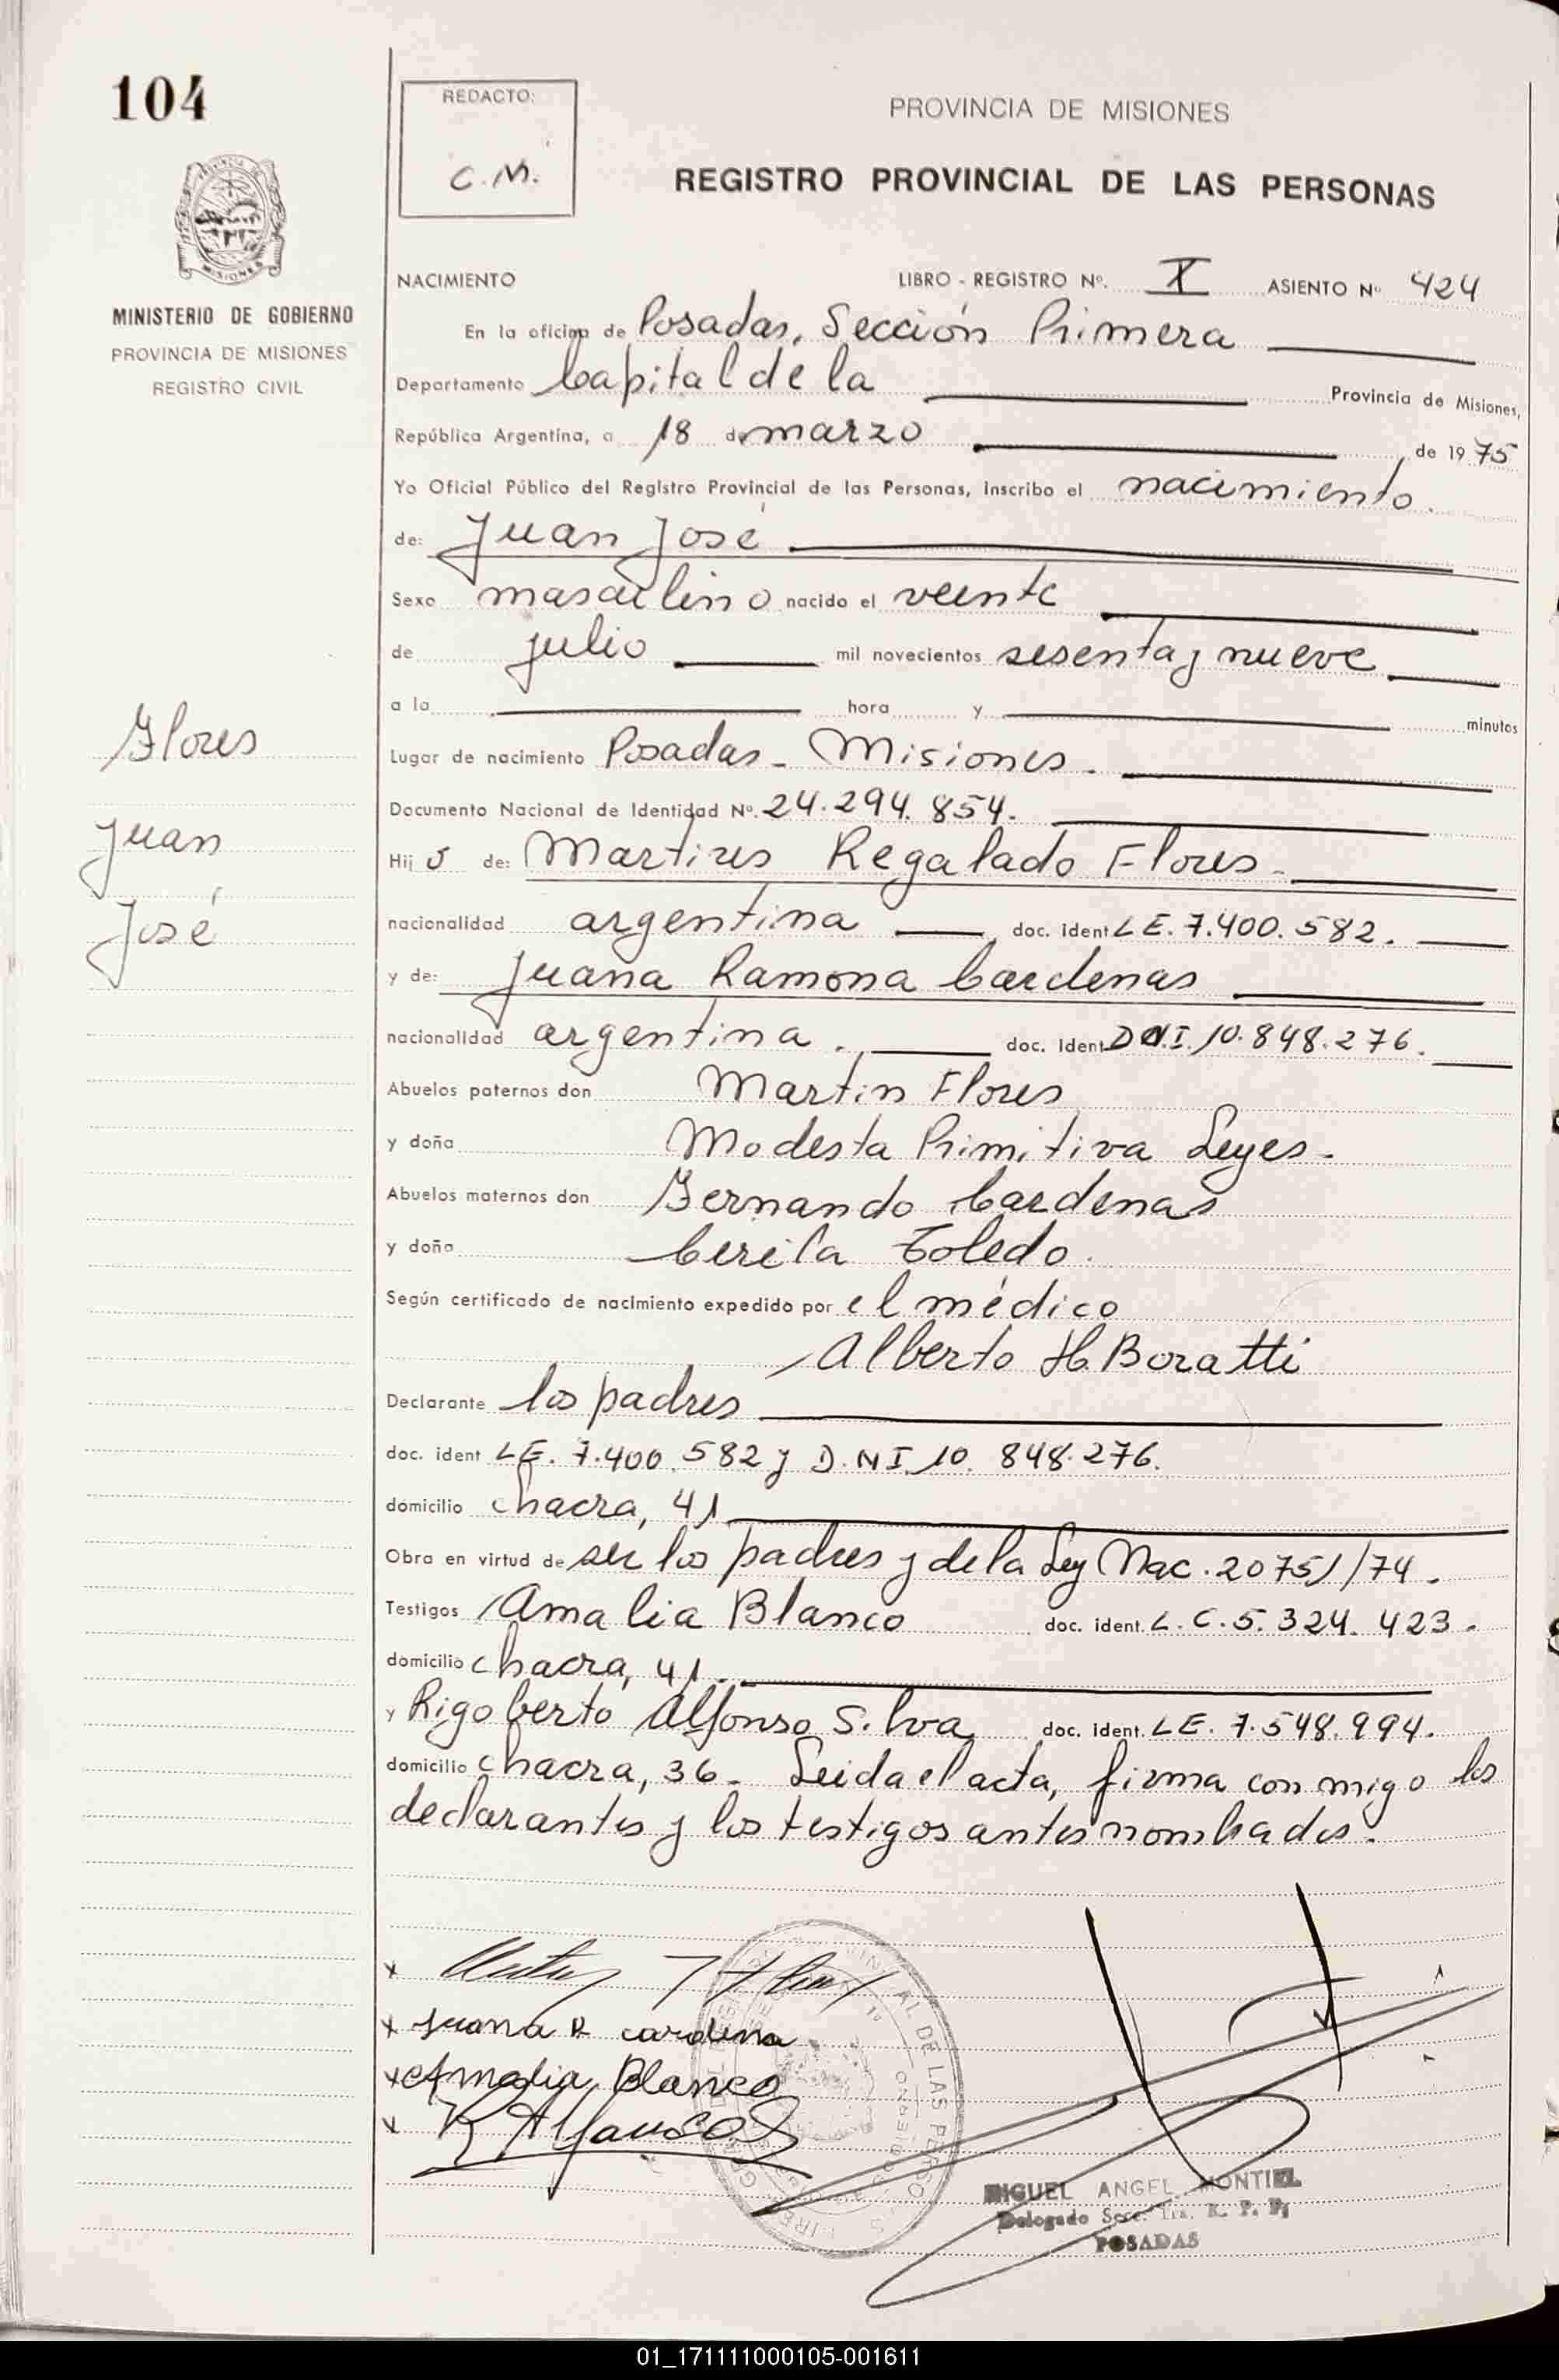 104
REDACTO:
C.M.
PROVINCIA DE MISIONES
REGISTRO PROVINCIAL DE LAS PERSONAS
MISIONES
MINISTERIO DE GOBIERNO
PROVINCIA DE MISIONES
REGISTRO CIVIL
NACIMIENTO LIBRO - REGISTRO Nº. X ASIENTO Nº 424
En la oficina de Posadas, Sección Primera
Departamento Capital de la Provincia de Misiones,
República Argentina, a 18 de marzo de 1975
Yo Oficial Público del Registro Provincial de las Personas, inscribo el nacimiento.
de: Juan José
Sexo masculino nacido el veinte
de julio mil novecientos sesenta y nueve
a la hora y minutos
Lugar de nacimiento Posadas - Misiones.
Documento Nacional de Identidad Nº. 24.294.854.
Hijo de: Martires Regalado Flores.
nacionalidad argentina doc. ident LE. 7.400.582.
y de: Juana Ramona Cardenas
nacionalidad argentina. doc. ident DNI. 10.848.276.
Abuelos paternos don Martin Flores
y doña Modesta Primitiva Leyes.
Abuelos maternos don Fernando Cardenas
y doña Cerila Toledo.
Según certificado de nacimiento expedido por el médico
Alberto H. Boratti
Declarante los padres
doc. ident LE. 7.400.582 y D.N I. 10. 848.276.
domicilio chacra, 41
Obra en virtud de ser los padres y de la Ley Nac. 20751/74.
Testigos Amalia Blanco doc. ident. L.C. 5.324.423.
domicilio chacra, 41.
y Rigoberto Alfonso Silva doc. ident. LE. 7.548.994.
domicilio chacra, 36. Leida el acta, firma con migo los
declarantes y los testigos antes nombrados.
Flores
Juan
José
x
x Juana R cardena
x Amalia Blanco
x R Alfonso S
MIGUEL ANGEL MONTIEL
Delegado Secc. 1ra. R. P. P.
POSADAS
01_171111000105-001611